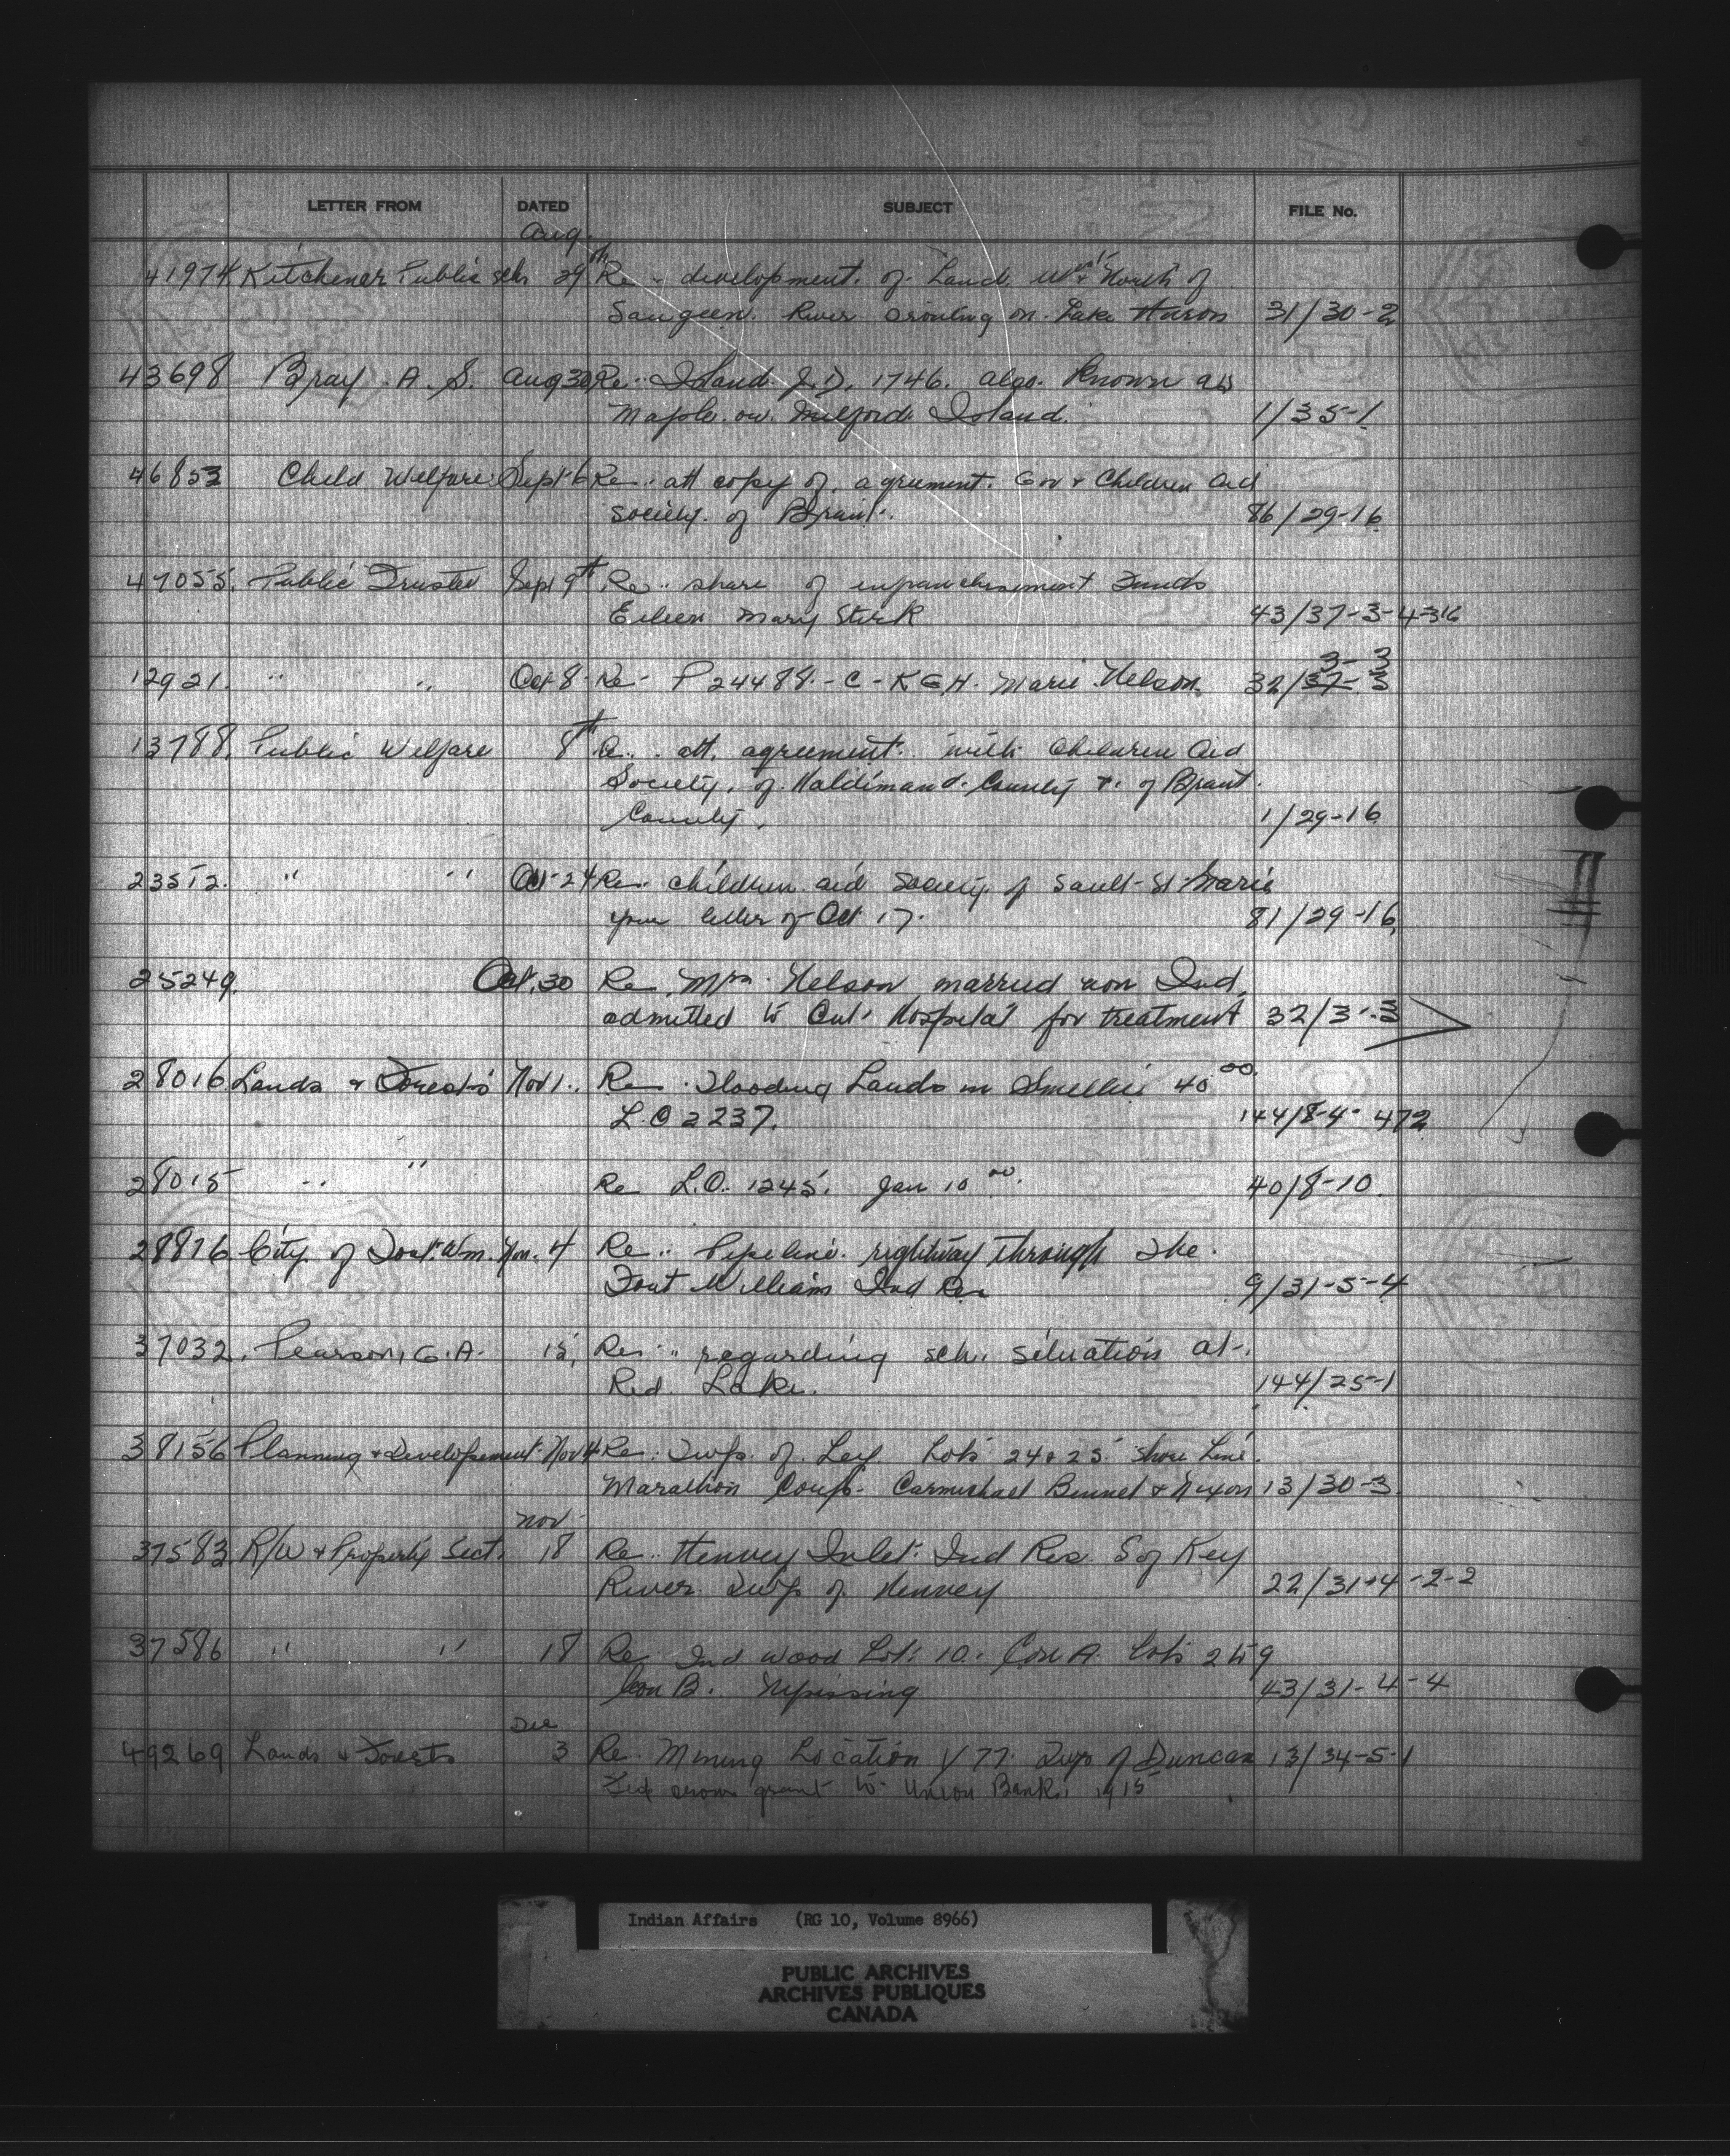 LETTER FROM DATED SUBJECT FILE No.
Aug.
41974. Kitchener Public sch 29th Re - development. of. Land. & North of
Saugeen. River on. Lake Huron 31/30-2
43698 Bray. A. S. Aug 30 Re. Island J.D. 1746. also. known as
Maple. or. Milford. Island. 1/35-1
46853 Child Welfare. Sept-6 Re.. att copy of. agrument. Gov & Children Aid
Society. of Brant. 86/29-16
47055. Public Trustee Sept 9th Re.. share of enfranchisement Funds
Eileen Mary Stirk 43/37-3-4316
3-3
12921. " " Oct 8 Re - P 24488. - C - KGH. Marie Nelson. 32/37-3
13788. Public Welfare 8th att. agreement. with Children Aid
Society. of. Haldimand. County &. of Brant.
County. 1/29-16
23512. " " Oct-24 Re. children aid Society of Sault-St-Marie
your letter of Oct 17. 81/29-16
25249. Oct. 30 Re. Mrs. Nelson married non Ind.
admitted to Hospital for treatment 32/3-3
28016 Lands & Forests Nov 1.. Re. Flooding Lands in Smellie 40 00.
L.O 2237. 144/8-4-472
28015 " " Re L.O. 1245. Jan 10 00. 40/8-10.
28876 City of Fort. Wm. Nov. 4 Re.. Pipeline. rightway through The.
Fort William Ind Res 9/31-5-4
37032. Pearson, G.A. 15, Re.. regarding sch. situation at.
Red. Lake. 144/25-1
38156 Planning & Developement Nov 14 Re: Twp. of. Ley Lots 24 & 25 Shore Line.
Marathon Corp. Carmichael Bennet & Nixon 13/30-3
Nov
37583 R/W & Property Sect. 18 Re.. Henvey Inlet. Ind Res. S of Key
River. Twp of. Henvey 22/31-4-2-2
37586 " " 18 Re. Ind wood Lot: 10. Con A. Lots 2 to 9
Con B. Nipissing 43/31-4-4
Dec
49269 Lands & Forests 3 Re. Mining Location Y77. Twp of Duncan 13/34-5-1
crown grant to Union Bank. 1915
Indian Affairs (RG 10, Volume 8966)
PUBLIC ARCHIVES
ARCHIVES PUBLIQUES
CANADA